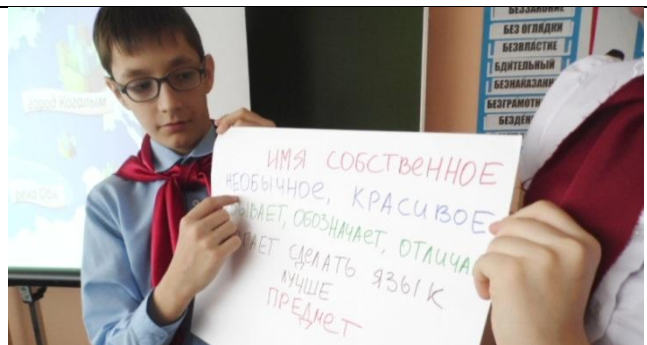 город Когалым
река Обь
БЕЗЗАКОНИЕ
БЕЗ ОГЛЯДКИ
БЕЗВЛАСТИЕ
БДИТЕЛЬНЫЙ
БЕЗНАКАЗАНН
БЕЗГРАМОТН
БЕЗДЕН
ИМЯ СОБСТВЕННОЕ
НЕОБЫЧНОЕ, КРАСИВОЕ
ЫВАЕТ, ОБОЗНАЧАЕТ, ОТЛИЧА
ГАЕТ СДЕЛАТЬ ЯЗЫК
ЛУЧШЕ
ПРЕДМЕТ